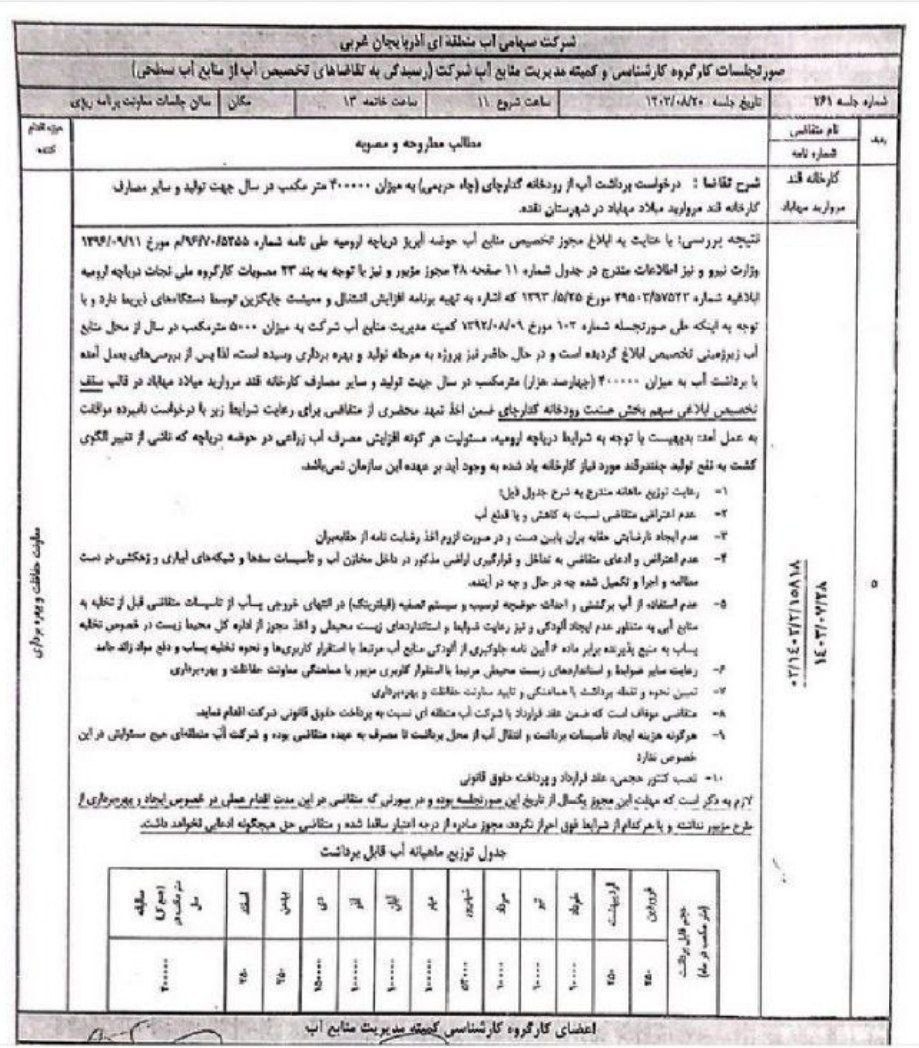 شرکت سهامی آب منطقه ای آذربایجان غربی
صورتجلسات کارگروه کارشناسی و کمیته مدیریت منابع آب شرکت (رسیدگی به تقاضاهای تخصیص آب از منابع آب سطحی)
شماره جلسه ۲۶۱
تاریخ جلسه ۱۴۰۲/۰۸/۲۰
ساعت شروع ۱۱
ساعت خاتمه ۱۳
مکان
سالن جلسات معاونت برنامه ریزی
ردیف
نام متقاضی
شماره نامه
مطالب مطروحه و مصوبه
حوزه اقدام
کننده
۵
کارخانه قند
مروارید مهاباد
۰۲/۱۴۰۲/۲/۱۵۸۱۸
۱۴۰۳/۰۷/۲۸
شرح تقاضا : درخواست برداشت آب از رودخانه گدارچای (چاه حریمی) به میزان ۴۰۰۰۰۰ متر مکعب در سال جهت تولید و سایر مصارف
کارخانه قند مروارید میلاد مهاباد در شهرستان نقده.
نتیجه بررسی: با عنایت به ابلاغ مجوز تخصیص منابع آب حوضه آبریز دریاچه ارومیه طی نامه شماره ۹۶/۷۰/۵۳۵۵/م مورخ ۱۳۹۶/۰۹/۱۱
وزارت نیرو و نیز اطلاعات مندرج در جدول شماره ۱۱ صفحه ۲۸ مجوز مزبور و نیز با توجه به بند ۲۳ مصوبات کارگروه ملی نجات دریاچه ارومیه
ابلاغیه شماره ۲۹۵۰۳/۵۷۵۲۳ مورخ ۱۳۹۳/۵/۲۵ که اشاره به تهیه برنامه افزایش اشتغال و معیشت جایگزین توسط دستگاه‌های ذیربط دارد و با
توجه به اینکه طی صورتجلسه شماره ۱۰۳ مورخ ۱۳۹۲/۰۸/۰۹ کمیته مدیریت منابع آب شرکت به میزان ۵۰۰۰ مترمکعب در سال از محل منابع
آب زیرزمینی تخصیص ابلاغ گردیده است و در حال حاضر نیز پروژه به مرحله تولید و بهره برداری رسیده است، لذا پس از بررسی‌های بعمل آمده
با برداشت آب به میزان ۴۰۰۰۰۰ (چهارصد هزار) مترمکعب در سال جهت تولید و سایر مصارف کارخانه قند مروارید میلاد مهاباد در قالب سقف
تخصیص ابلاغی سهم بخش صنعت رودخانه گدارچای ضمن اخذ تعهد محضری از متقاضی برای رعایت شرایط زیر با درخواست نامبرده موافقت
به عمل آمد: بدیهیست با توجه به شرایط دریاچه ارومیه، مسئولیت هر گونه افزایش مصرف آب زراعی در حوضه دریاچه که ناشی از تغییر الگوی
کشت به نفع تولید چغندرقند مورد نیاز کارخانه یاد شده به وجود آید بر عهده این سازمان نمی‌باشد.
۱- رعایت توزیع ماهانه مندرج به شرح جدول ذیل:
۲- عدم اعتراض متقاضی نسبت به کاهش و یا قطع آب
۳- عدم ایجاد نارضایتی حقابه بران پایین دست و در صورت لزوم اخذ رضایت نامه از حقابه‌بران
۴- عدم اعتراض و ادعای متقاضی به تداخل و قرارگیری اراضی مذکور در داخل مخازن آب و تأسیسات سدها و شبکه‌های آبیاری و زهکشی در دست
مطالعه و اجرا و تکمیل شده چه در حال و چه در آینده.
۵- عدم استفاده از آب برگشتی و احداث حوضچه ترسیب و سیستم تصفیه (فیلترینگ) در انتهای خروجی پساب از تاسیسات متقاضی قبل از تخلیه به
منابع آبی به منظور عدم ایجاد آلودگی و نیز رعایت ضوابط و استانداردهای زیست محیطی و اخذ مجوز از اداره کل محیط زیست در خصوص تخلیه
پساب به منبع پذیرنده برابر ماده ۶ آیین نامه جلوگیری از آلودگی منابع آب مرتبط با استقرار کاربری‌ها و نحوه تخلیه پساب و دفع مواد زائد جامد
۶- رعایت سایر ضوابط و استانداردهای زیست محیطی مرتبط با استقرار کاربری مزبور با هماهنگی معاونت حفاظت و بهره‌برداری
۷- تعیین نحوه و نقطه برداشت با هماهنگی و تایید معاونت حفاظت و بهره‌برداری
۸- متقاضی موظف است که ضمن عقد قرارداد با شرکت آب منطقه ای نسبت به پرداخت حقوق قانونی شرکت اقدام نماید.
۹- هرگونه هزینه ایجاد تأسیسات برداشت و انتقال آب از محل برداشت تا مصرف به عهده متقاضی بوده و شرکت آب منطقه‌ای هیچ مسئولیتی در این
خصوص ندارد
۱۰- نصب کنتور حجمی، عقد قرارداد و پرداخت حقوق قانونی
لازم به ذکر است که مهلت این مجوز یکسال از تاریخ این صورتجلسه بوده و در صورتی که متقاضی در این مدت اقدام عملی در خصوص ایجاد و بهره‌برداری از
طرح مزبور نداشته و یا هر کدام از شرایط فوق احراز نگردد، مجوز صادره از درجه اعتبار ساقط شده و متقاضی حق هیچگونه ادعایی نخواهد داشت.
معاونت حفاظت و بهره برداری
جدول توزیع ماهیانه آب قابل برداشت
فروردین اردیبهشت خرداد تیر مرداد شهریور مهر آبان آذر دی بهمن اسفند
حجم قابل برداشت
(متر مکعب در ماه)
اعضای کارگروه کارشناسی کمیته مدیریت منابع آب